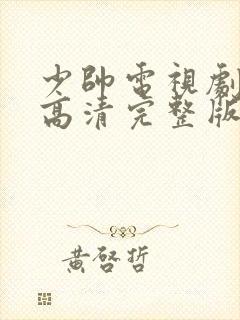 少帥電視劇
高清完整版
黃啓哲